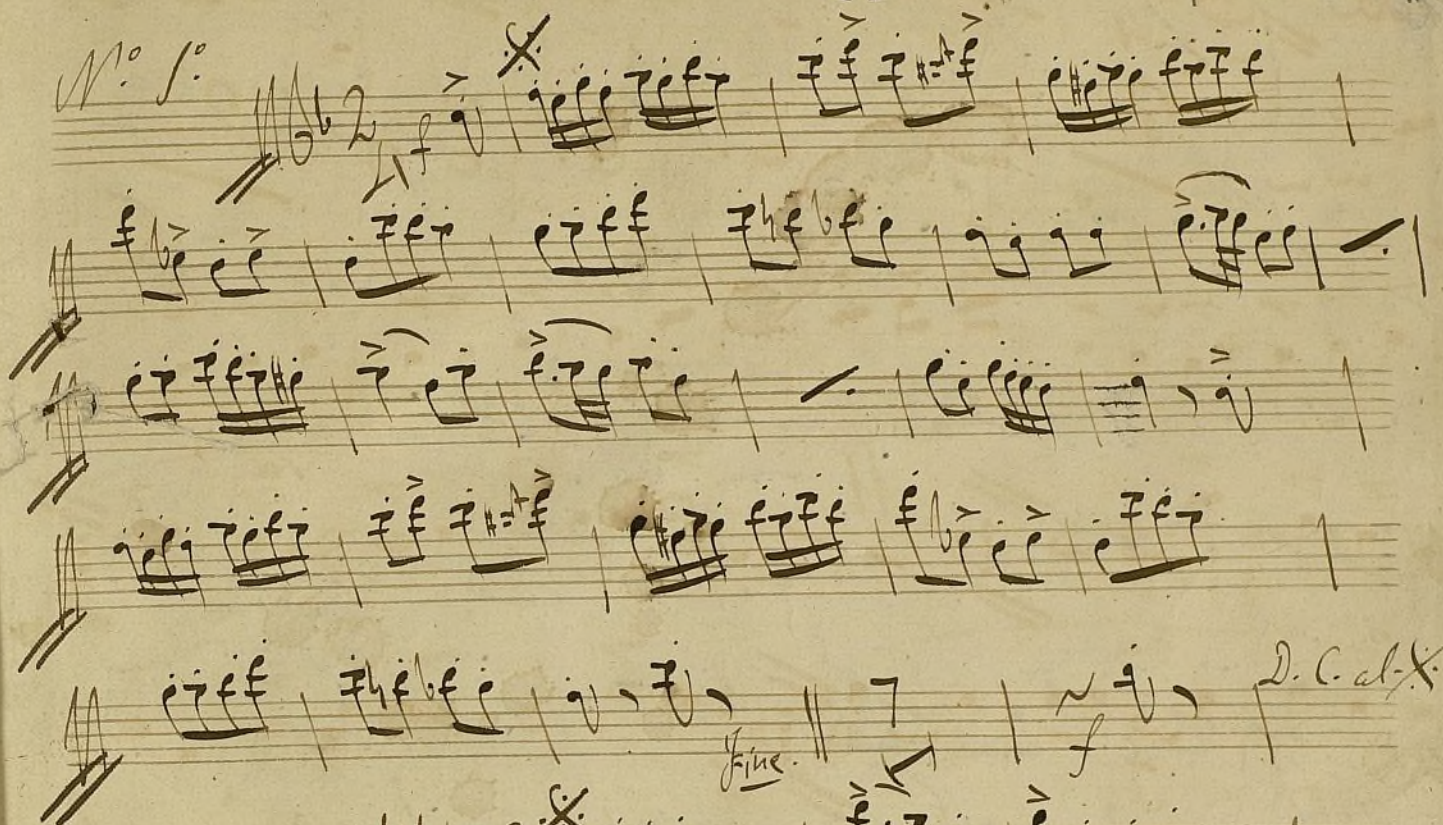 Nº 1º
2
4 f
Fine.
f
D. C. al